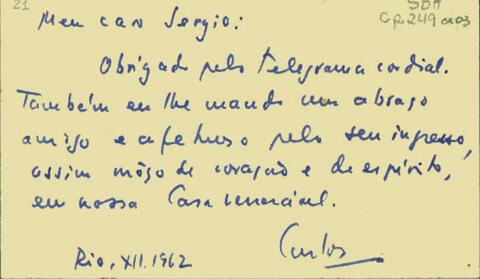 21
SBH
Cp 249 P103
Meu caro Sergio:
Obrigado pelo telegrama cordial.
Também eu lhe mando um abraço
amigo e afetuoso pelo seu ingresso,
assim môço de coração e de espírito,
em nossa Casa venerável.
Carlos
Rio, XII.1962